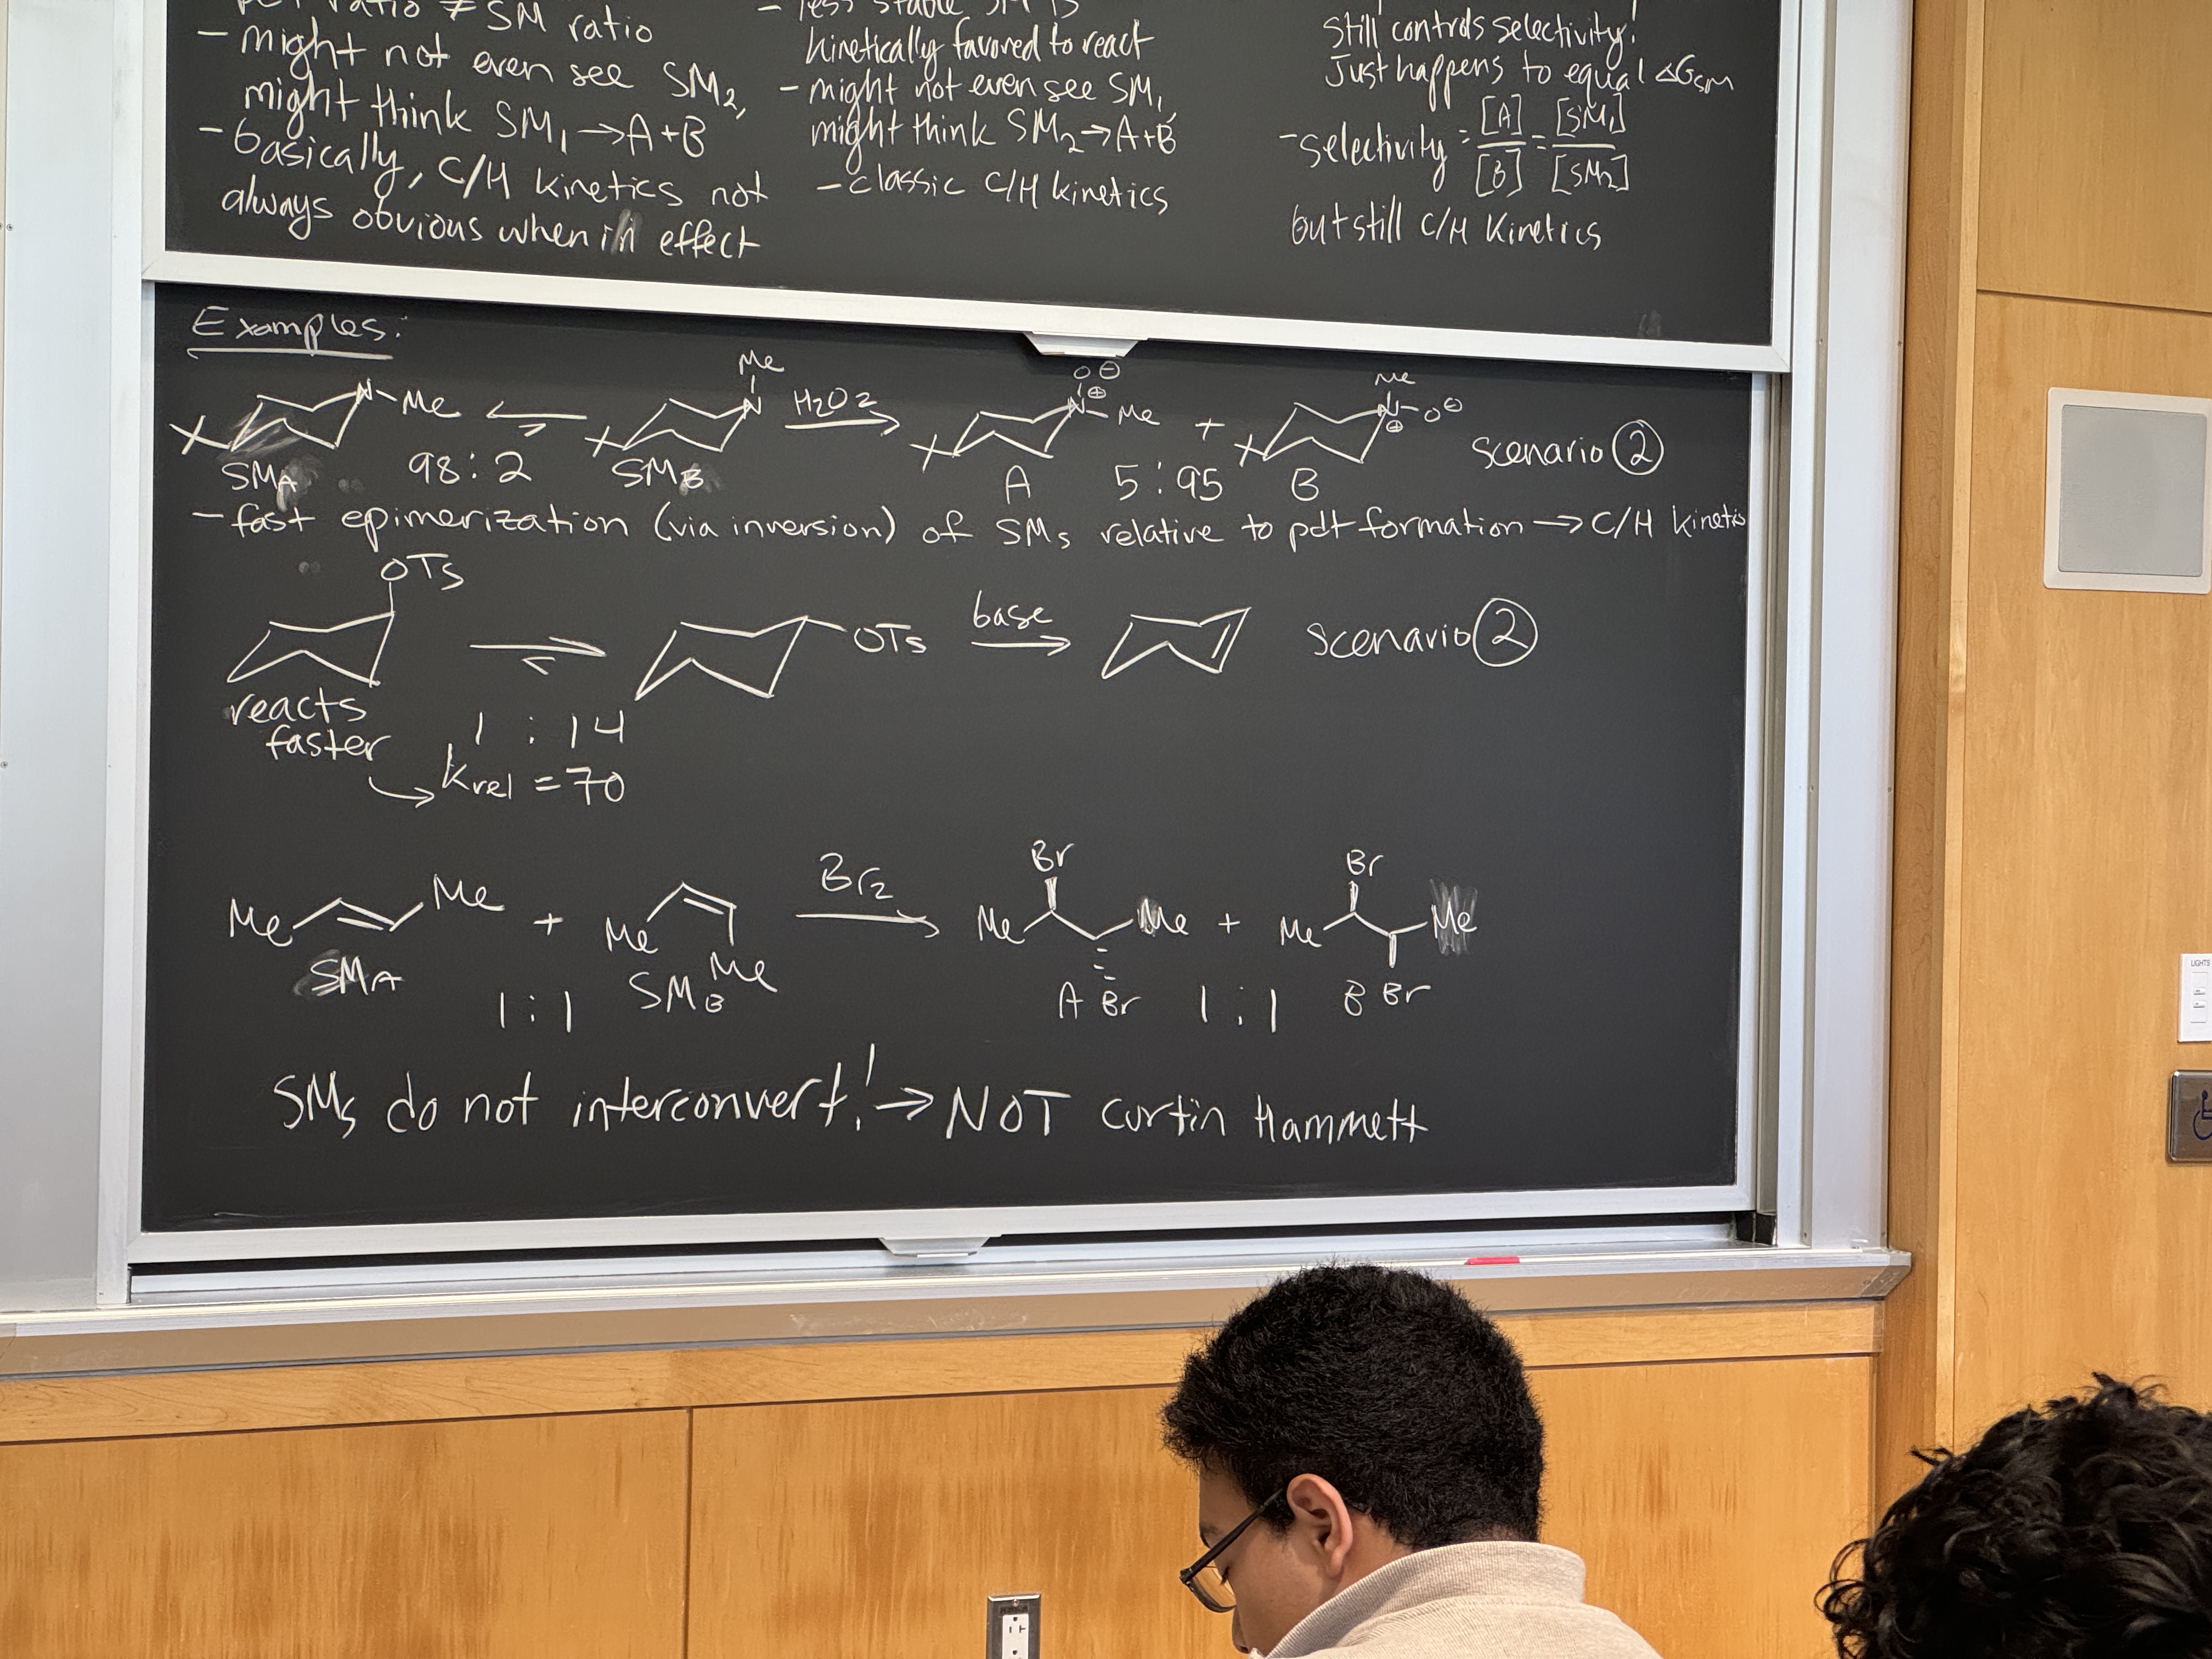 pdt ratio ≠ SM ratio
- might not even see SM2,
might think SM1 → A+B
- basically, C/H kinetics not
always obvious when in effect
- less stable SM is
kinetically favored to react
- might not even see SM1
might think SM2 → A+B
- classic C/H kinetics
still controls selectivity!
Just happens to equal ΔGSM
- selectivity = [A]/[B] = [SM1]/[SM2]
but still C/H kinetics
Examples:
N-Me Me N H2O2 O⊖ N⊕ Me + Me N⊕ O⊖ scenario ②
SMA 98:2 SMB A 5:95 B
- fast epimerization (via inversion) of SMs relative to pdt formation → C/H kinetics
OTs
OTs base scenario ②
reacts
faster
1 : 14
krel = 70
Me Me + Me Me Br2 Br Me Me Br + Br Me Me Br
SMA 1:1 SMB A 1:1 B
SMs do not interconvert! → NOT Curtin Hammett
LIGHTS